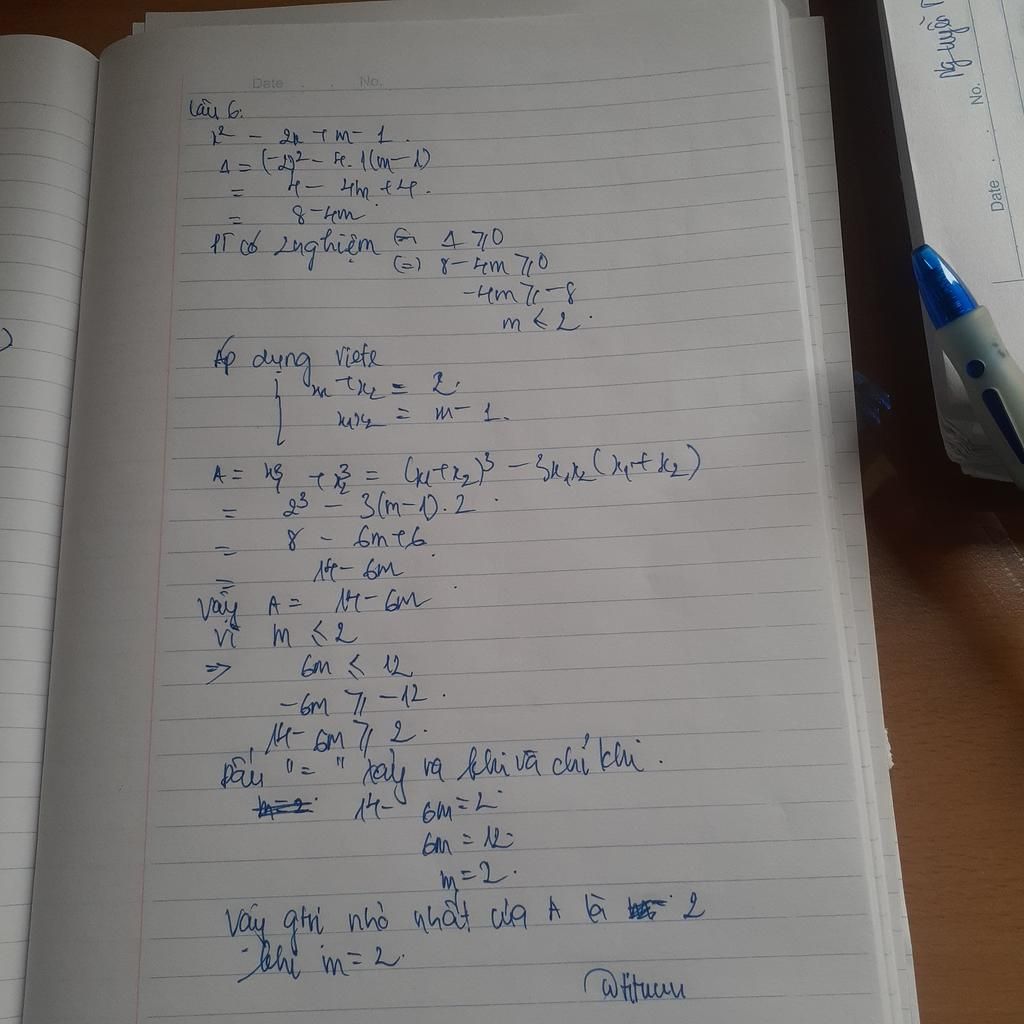 Date . . No.
Câu 6:
x² - 2x + m - 1.
Δ = (-2)² - 4.1(m-1)
= 4 - 4m + 4.
= 8 - 4m
PT có 2 nghiệm ⇔ Δ ⩾ 0
(=) 8 - 4m ⩾ 0
-4m ⩾ -8
m ⩽ 2.
Áp dụng viete
x₁ + x₂ = 2.
x₁x₂ = m - 1.
A = x₁³ + x₂³ = (x₁+x₂)³ - 3x₁x₂(x₁+x₂)
= 2³ - 3(m-1).2
= 8 - 6m + 6
= 14 - 6m
Vậy A = 14 - 6m
Vì m ⩽ 2
=> 6m ⩽ 12
-6m ⩾ -12.
14 - 6m ⩾ 2.
Dấu "=" xảy ra khi và chỉ khi.
14 - 6m = 2
6m = 12
m = 2.
Vậy gtri nhỏ nhất của A là 2
khi m = 2.
@tituuu
Nguyễn
Date . . No.